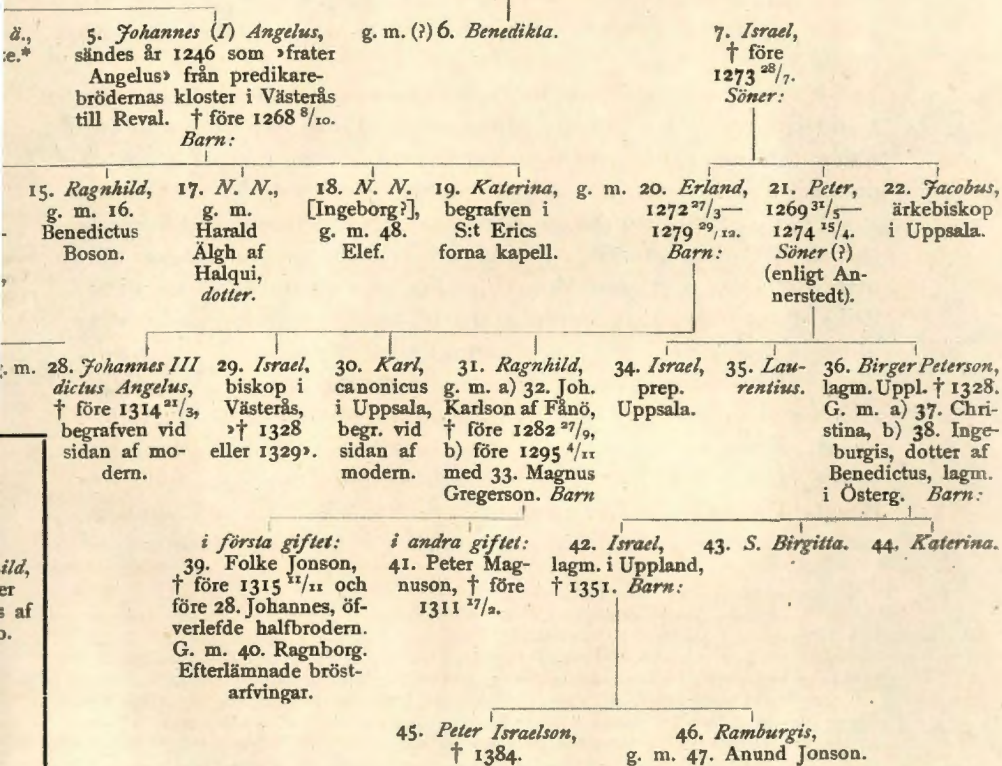 ä.,
e.*
5. Johannes (I) Angelus,
sändes år 1246 som »frater
Angelus» från predikare-
brödernas kloster i Västerås
till Reval. † före 1268 8/10.
Barn:
g. m. (?) 6. Benedikta.
7. Israel,
† före
1273 28/7.
Söner:
15. Ragnhild,
g. m. 16.
Benedictus
Boson.
17. N. N.,
g. m.
Harald
Älgh af
Halqui,
dotter.
18. N. N.
[Ingeborg?],
g. m. 48.
Elef.
19. Katerina,
begrafven i
S:t Erics
forna kapell.
g. m. 20. Erland,
1272 27/3—
1279 29/12.
Barn:
21. Peter,
1269 31/5—
1274 15/4.
Söner (?)
(enligt An-
nerstedt).
22. Jacobus,
ärkebiskop
i Uppsala.
g. m. 28. Johannes III
dictus Angelus,
† före 1314 21/3,
begrafven vid
sidan af mo-
dern.
29. Israel,
biskop i
Västerås,
»† 1328
eller 1329».
30. Karl,
canonicus
i Uppsala,
begr. vid
sidan af
modern.
31. Ragnhild,
g. m. a) 32. Joh.
Karlson af Fånö,
† före 1282 27/9,
b) före 1295 4/11
med 33. Magnus
Gregerson. Barn
34. Israel,
prep.
Uppsala.
35. Lau-
rentius.
36. Birger Peterson,
lagm. Uppl. † 1328.
G. m. a) 37. Chri-
stina, b) 38. Inge-
burgis, dotter af
Benedictus, lagm.
i Österg. Barn:
ild,
er
s af
o.
i första giftet:
39. Folke Jonson,
† före 1315 11/11 och
före 28. Johannes, öf-
verlefde halfbrodern.
G. m. 40. Ragnborg.
Efterlämnade bröst-
arfvingar.
i andra giftet:
41. Peter Mag-
nuson, † före
1311 17/2.
42. Israel,
lagm. i Uppland,
† 1351. Barn:
43. S. Birgitta.
44. Katerina.
45. Peter Israelson,
† 1384.
46. Ramburgis,
g. m. 47. Anund Jonson.